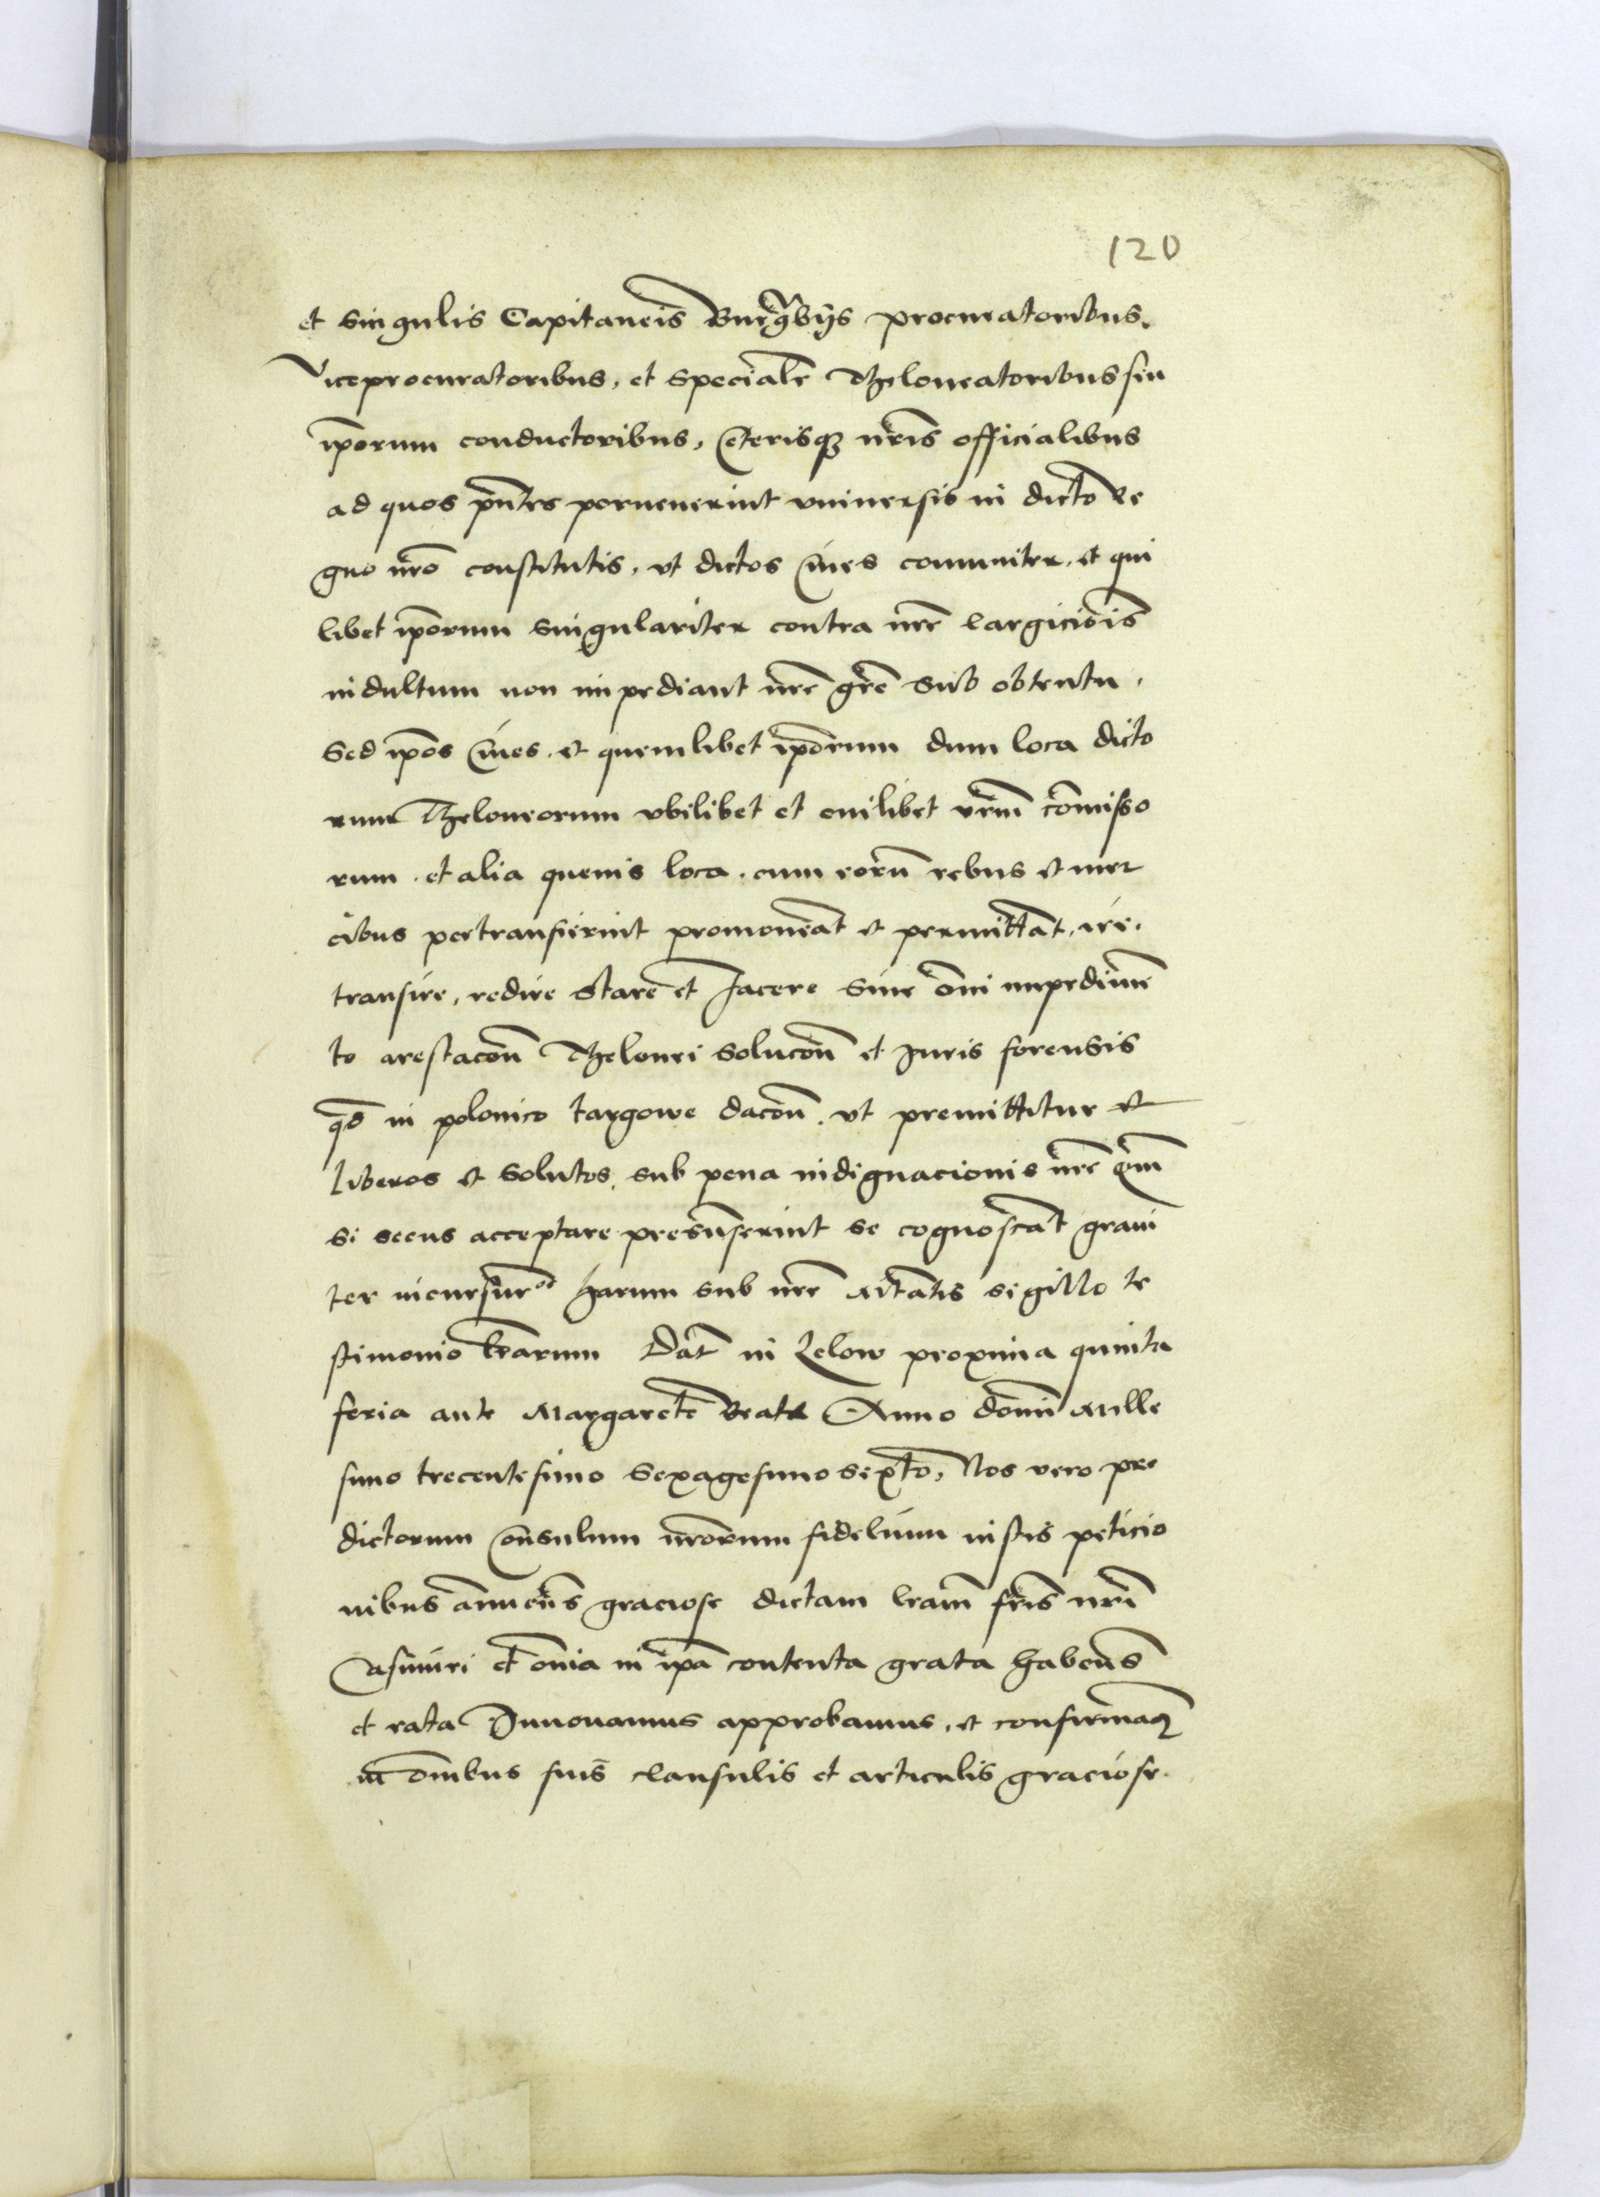 120
et singulis Capitaneis Burgrabijs procuratoribus.
Viceprocuratoribus, et specialr̄ Theloneatoribus seu
ip̄orum conductoribus, Ceterisq3 nr̄is officialibus
ad quos pn̄tes peruenerint vniuersis in dicto Re
gno nr̄o constitutis, vt dictos Ciues comuniter et qui
libet ip̄orum singulariter contra nr̄e largicio̅is
indultum non impediant nr̄e gr̄e sub obtentu,
Sed ip̄os Ciues et quemlibet ip̄orum dum loca dicto
rum Theloneorum vbilibet et cuilibet vr̄m com̄isso
rum et alia queuis loca cum eorū rebus et mer
cibus pertransierint promoueāt et permittāt ire,
transire, redire stare et Iacere sine om̄i impedimē
to arestacōn Thelonei solucōn et Iuris forensis
qd̄ in polonico targowe dacōn vt premittitur et
liberos et solutos, sub pena indignacionis nr̄e quā
si secus acceptare presūserint se cognoscāt graui
ter incursuros harum sub nr̄e Mtatis sigillo te
stimonio lr̄arum Dat̄ in Lelow proxima quinta
feria ante Margarete Beate Anno domī Mille
simo trecentesimo Sexagesimo sexto, Nos vero pre
dictorum Consulum nr̄orum fidelium iustis peticio
nibus annuen̄s graciose dictam lr̄am fr̄is nr̄i
Casimiri et om̄ia in ip̄a contenta grata haben̄s
et rata Innouamus approbamus, et confirmam9
in om̄ibus suis clausulis et articulis graciose.